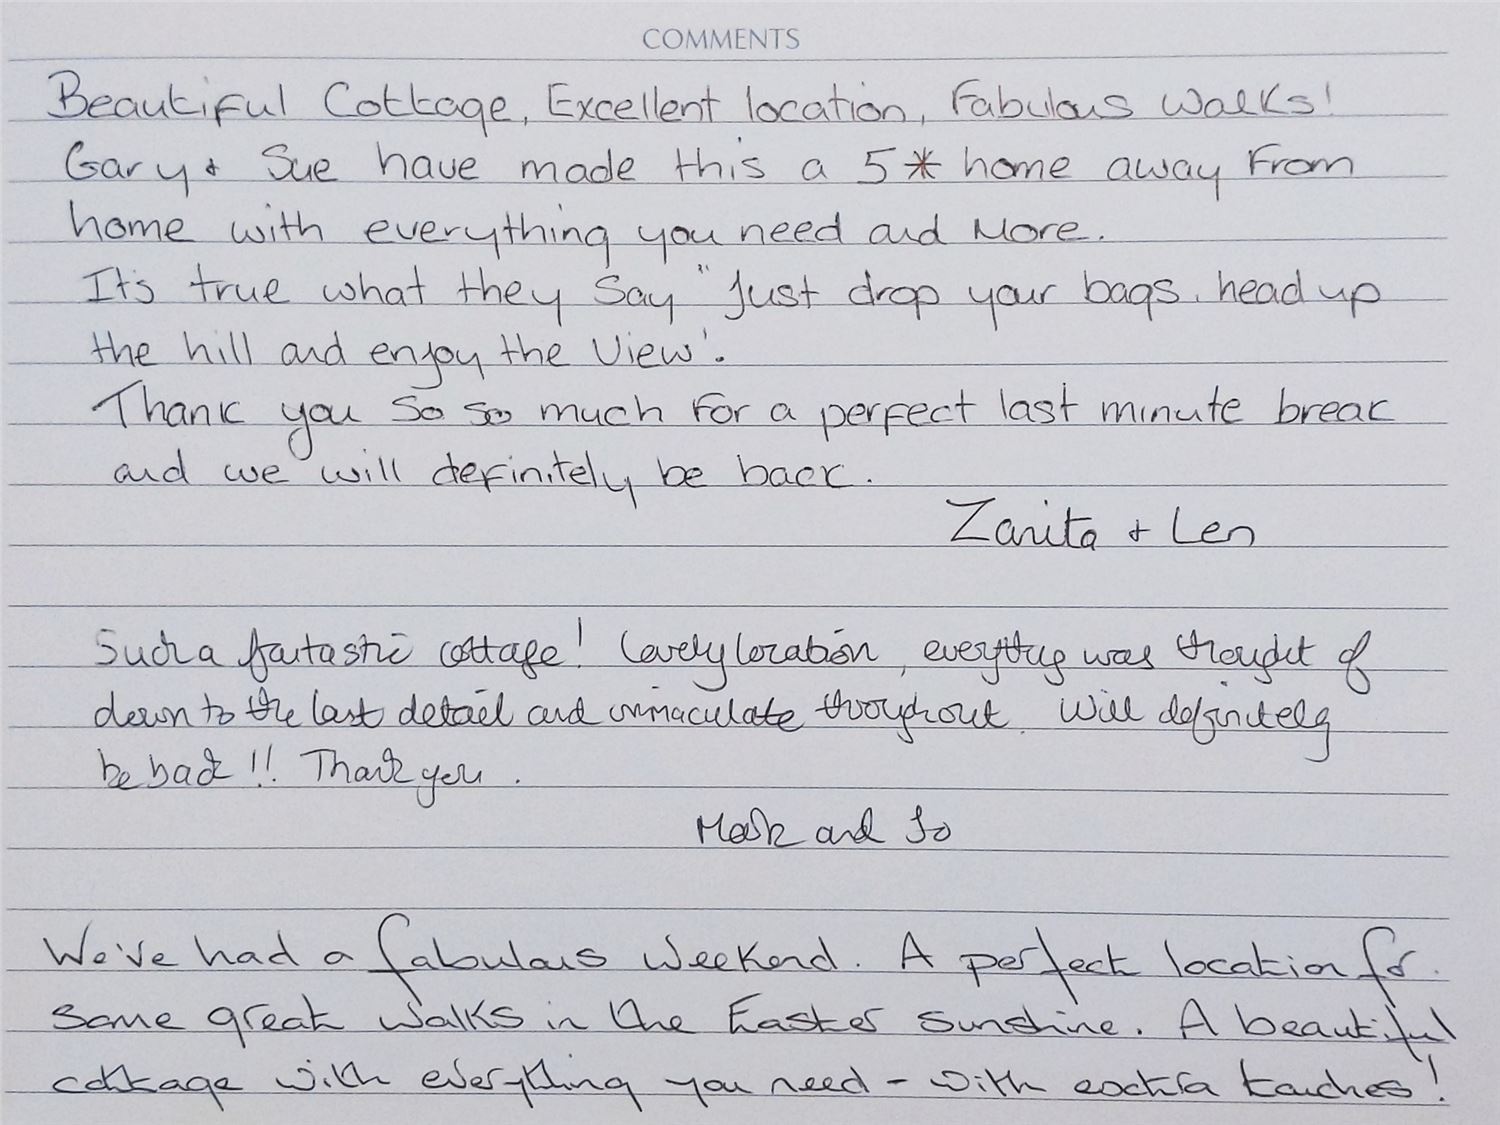 COMMENTS
Beautiful Cottage, Excellent location, Fabulous Walks!
Gary + Sue have made this a 5* home away From
home with everything you need and More.
It's true what they Say "Just drop your bags, head up
the hill and enjoy the View'.
Thank you So so much For a perfect last minute break
and we will definitely be back.
Zanita + Len
Such a fantastic cottage! Lovely location, everything was thought of
down to the last detail and immaculate throughout. Will definitely
be back!! Thank you.
Mark and Jo
We've had a fabulous weekend. A perfect location for
some great walks in the Easter sunshine. A beautiful
cottage with everything you need - with extra touches!